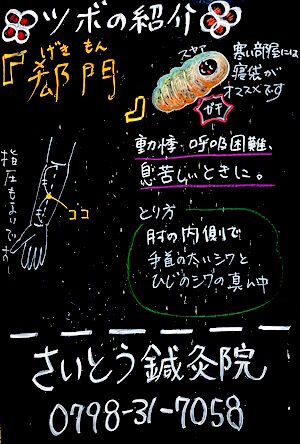 ツボの紹介
げきもん
『郄門』
スヤァ
寒い部屋には
寝袋が
オススメです
動悸・呼吸困難、
息苦しいときに。
とり方
肘の内側で
手首の太いシワと
ひじのシワの真ん中
ココ
さいとう鍼灸院
0798-31-7058